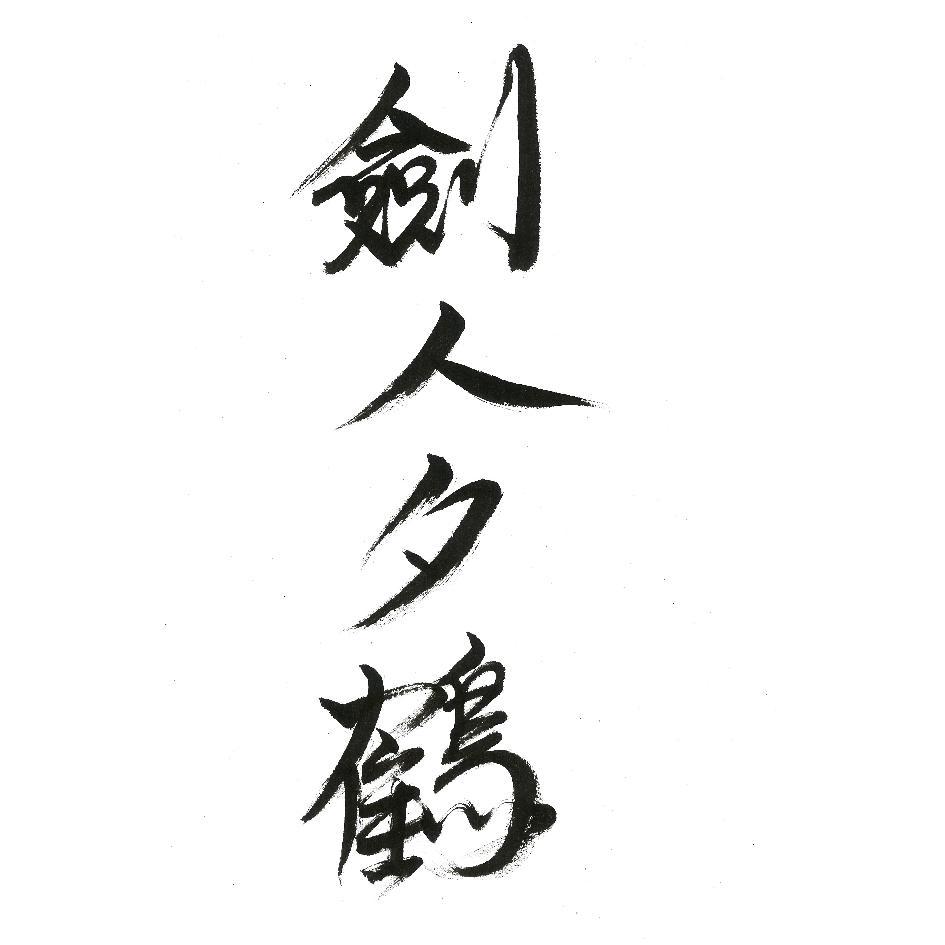 劍人夕鶴